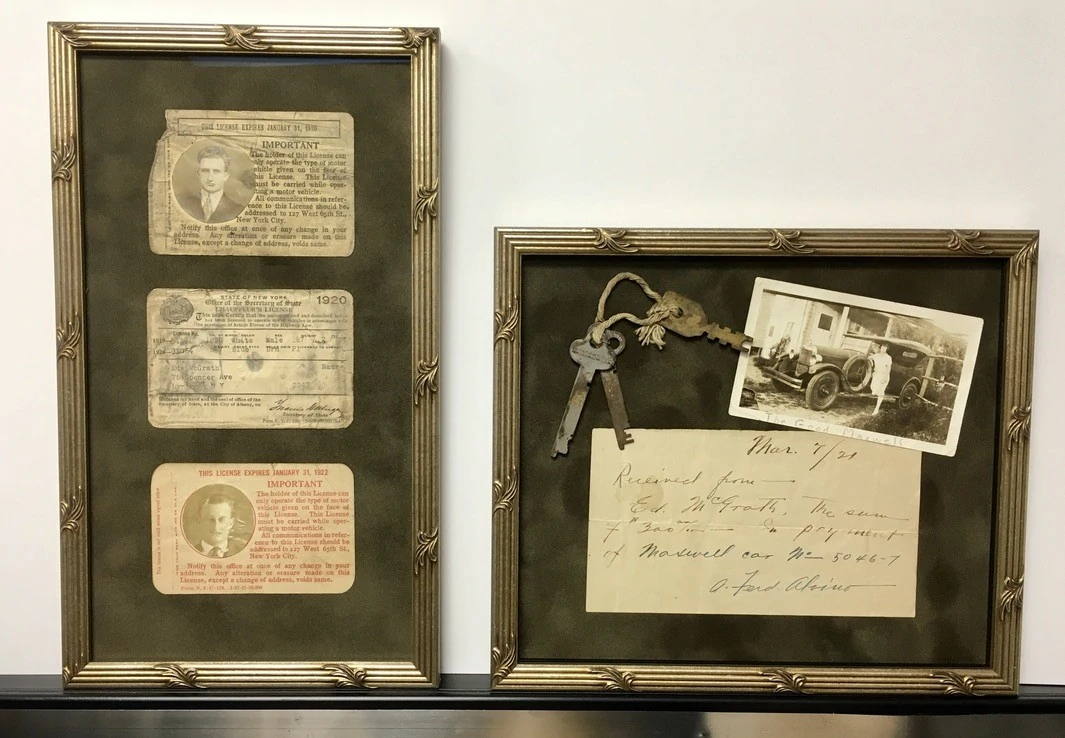 THIS LICENSE EXPIRES JANUARY 31,
IMPORTANT
The holder of this License can
only operate the type of motor
vehicle given on the face of
this License. This License
must be carried while oper-
ating a motor vehicle.
All communications in refer-
ence to this License should be
addressed to 127 West 65th St.,
New York City.
Notify this office at once of any change in your
address. Any alteration or erasure made on this
License, except a change of address, voids same.
STATE OF NEW YORK 1920
Office of the Secretary of State
CHAUFFEUR'S LICENSE
White Male
Blue Brn
McGrath
Spencer Ave
N Y
Secretary of State
THIS LICENSE EXPIRES JANUARY 31, 1922
IMPORTANT
The holder of this License can
only operate the type of motor
vehicle given on the face of
this License. This License
must be carried while oper-
ating a motor vehicle.
All communications in refer-
ence to this License should be
addressed to 127 West 65th St.,
New York City.
Notify this office at once of any change in your
address. Any alteration or erasure made on this
License, except a change of address, voids same.
The Good Maxwell
Mar. 7/21
Received from
Ed. McGrath, The sum
of $300 in payment
of Maxwell car No 5046-7
A. Ferd. Alvino